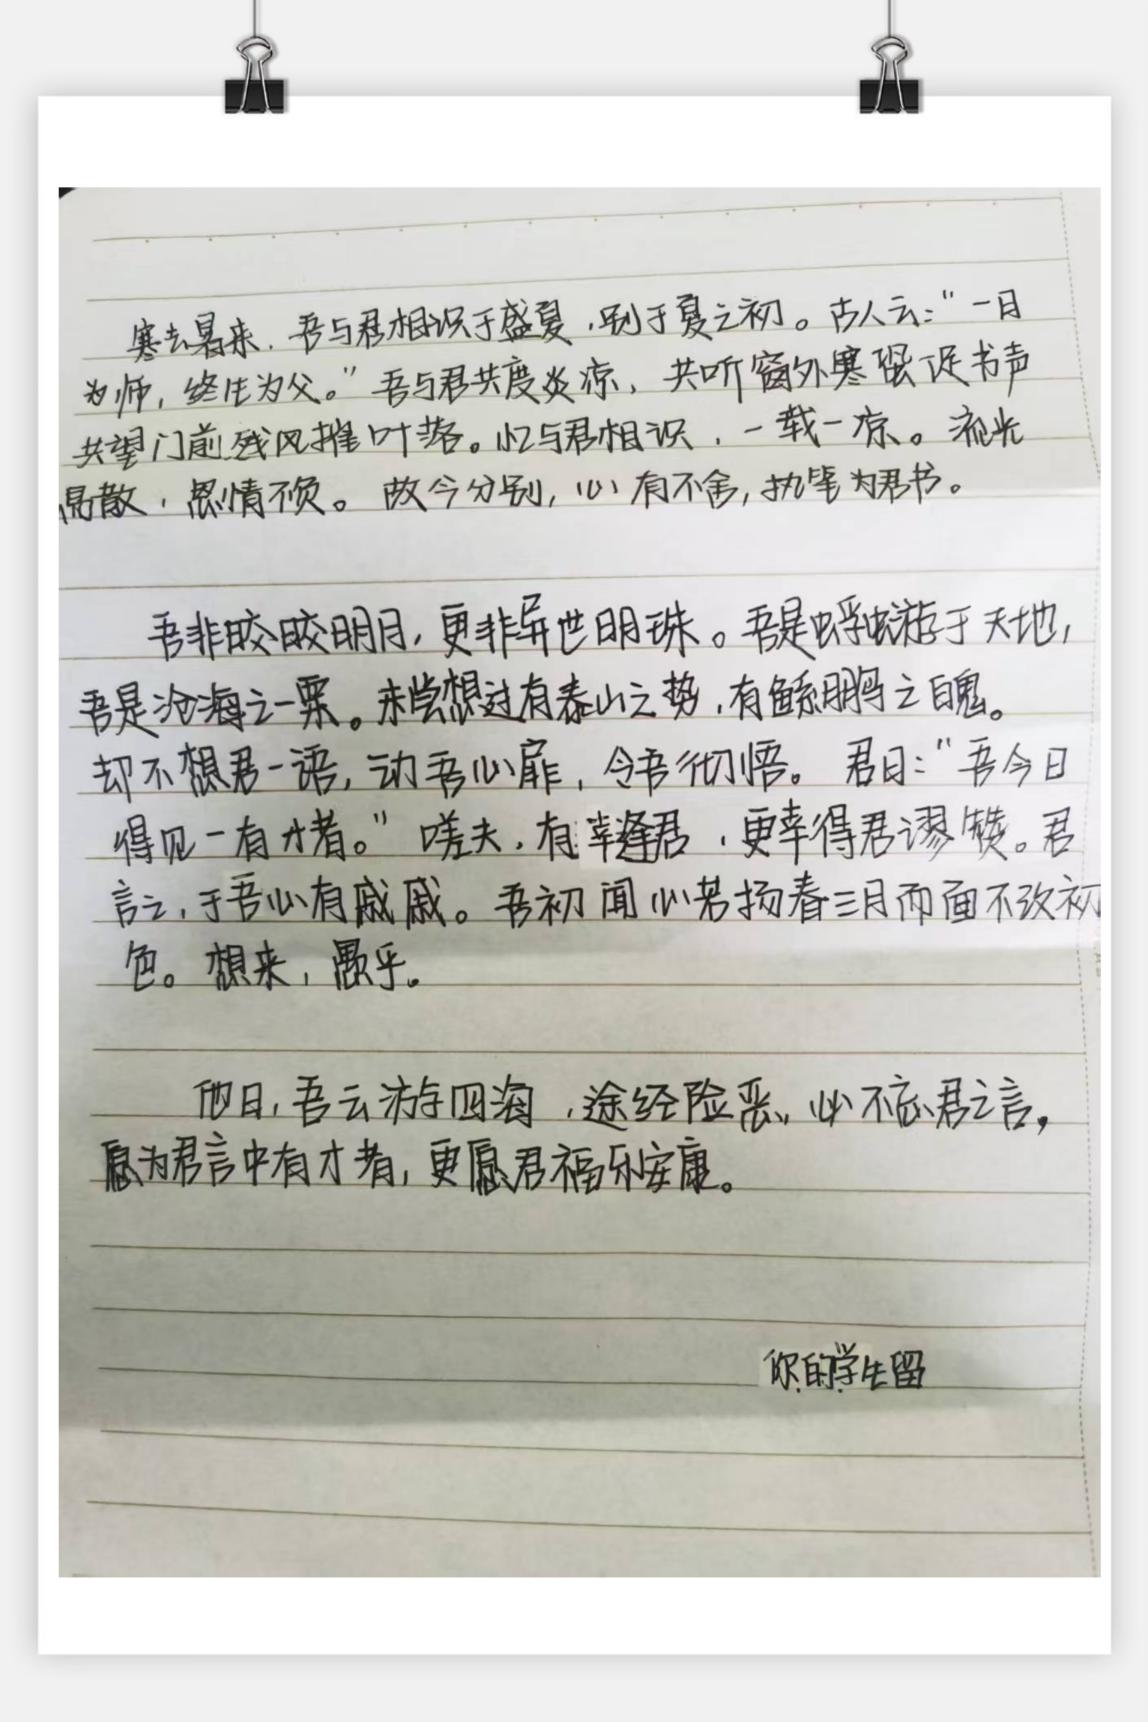 寒去暑来，吾与君相识于盛夏，别于夏之初。古人云："一日
为师，终生为父。"吾与君共度炎凉，共听窗外寒蛩促书声
共望门前残风摧叶落。忆与君相识，一载一凉。流光
易散，恩情不负。故今分别，心有不舍，执笔为君书。
吾非皎皎明月，更非异世明珠。吾是蜉蝣游于天地，
吾是沧海之一栗。未尝想过有泰山之势，有鲲鹏之魄。
却不想君一语，动吾心扉，令吾彻悟。君曰："吾今日
得见一有才者。"嗟夫，有幸逢君，更幸得君谬赞。君
言之，于吾心有戚戚。吾初闻心若扬春三月而面不改初
色。想来，愚乎。
他日，吾云游四海，途经险恶，必不忘君之言，
愿为君言中有才者，更愿君福乐安康。
你的学生留